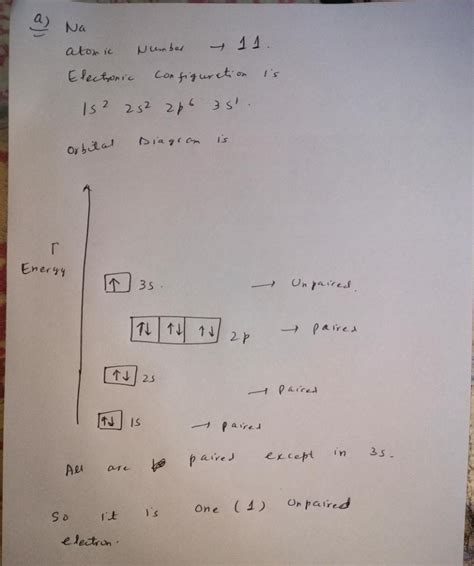 a) Na
atomic Number → 11.
Electronic Configuration is
1s² 2s² 2p⁶ 3s¹.
Orbital Diagram is
↑
Energy
↑ 3s. → Unpaired.
↑↓ ↑↓ ↑↓ 2p → paired
↑↓ 2s → paired
↑↓ 1s → paired
All are paired except in 3s.
So it is one (1) unpaired
electron.